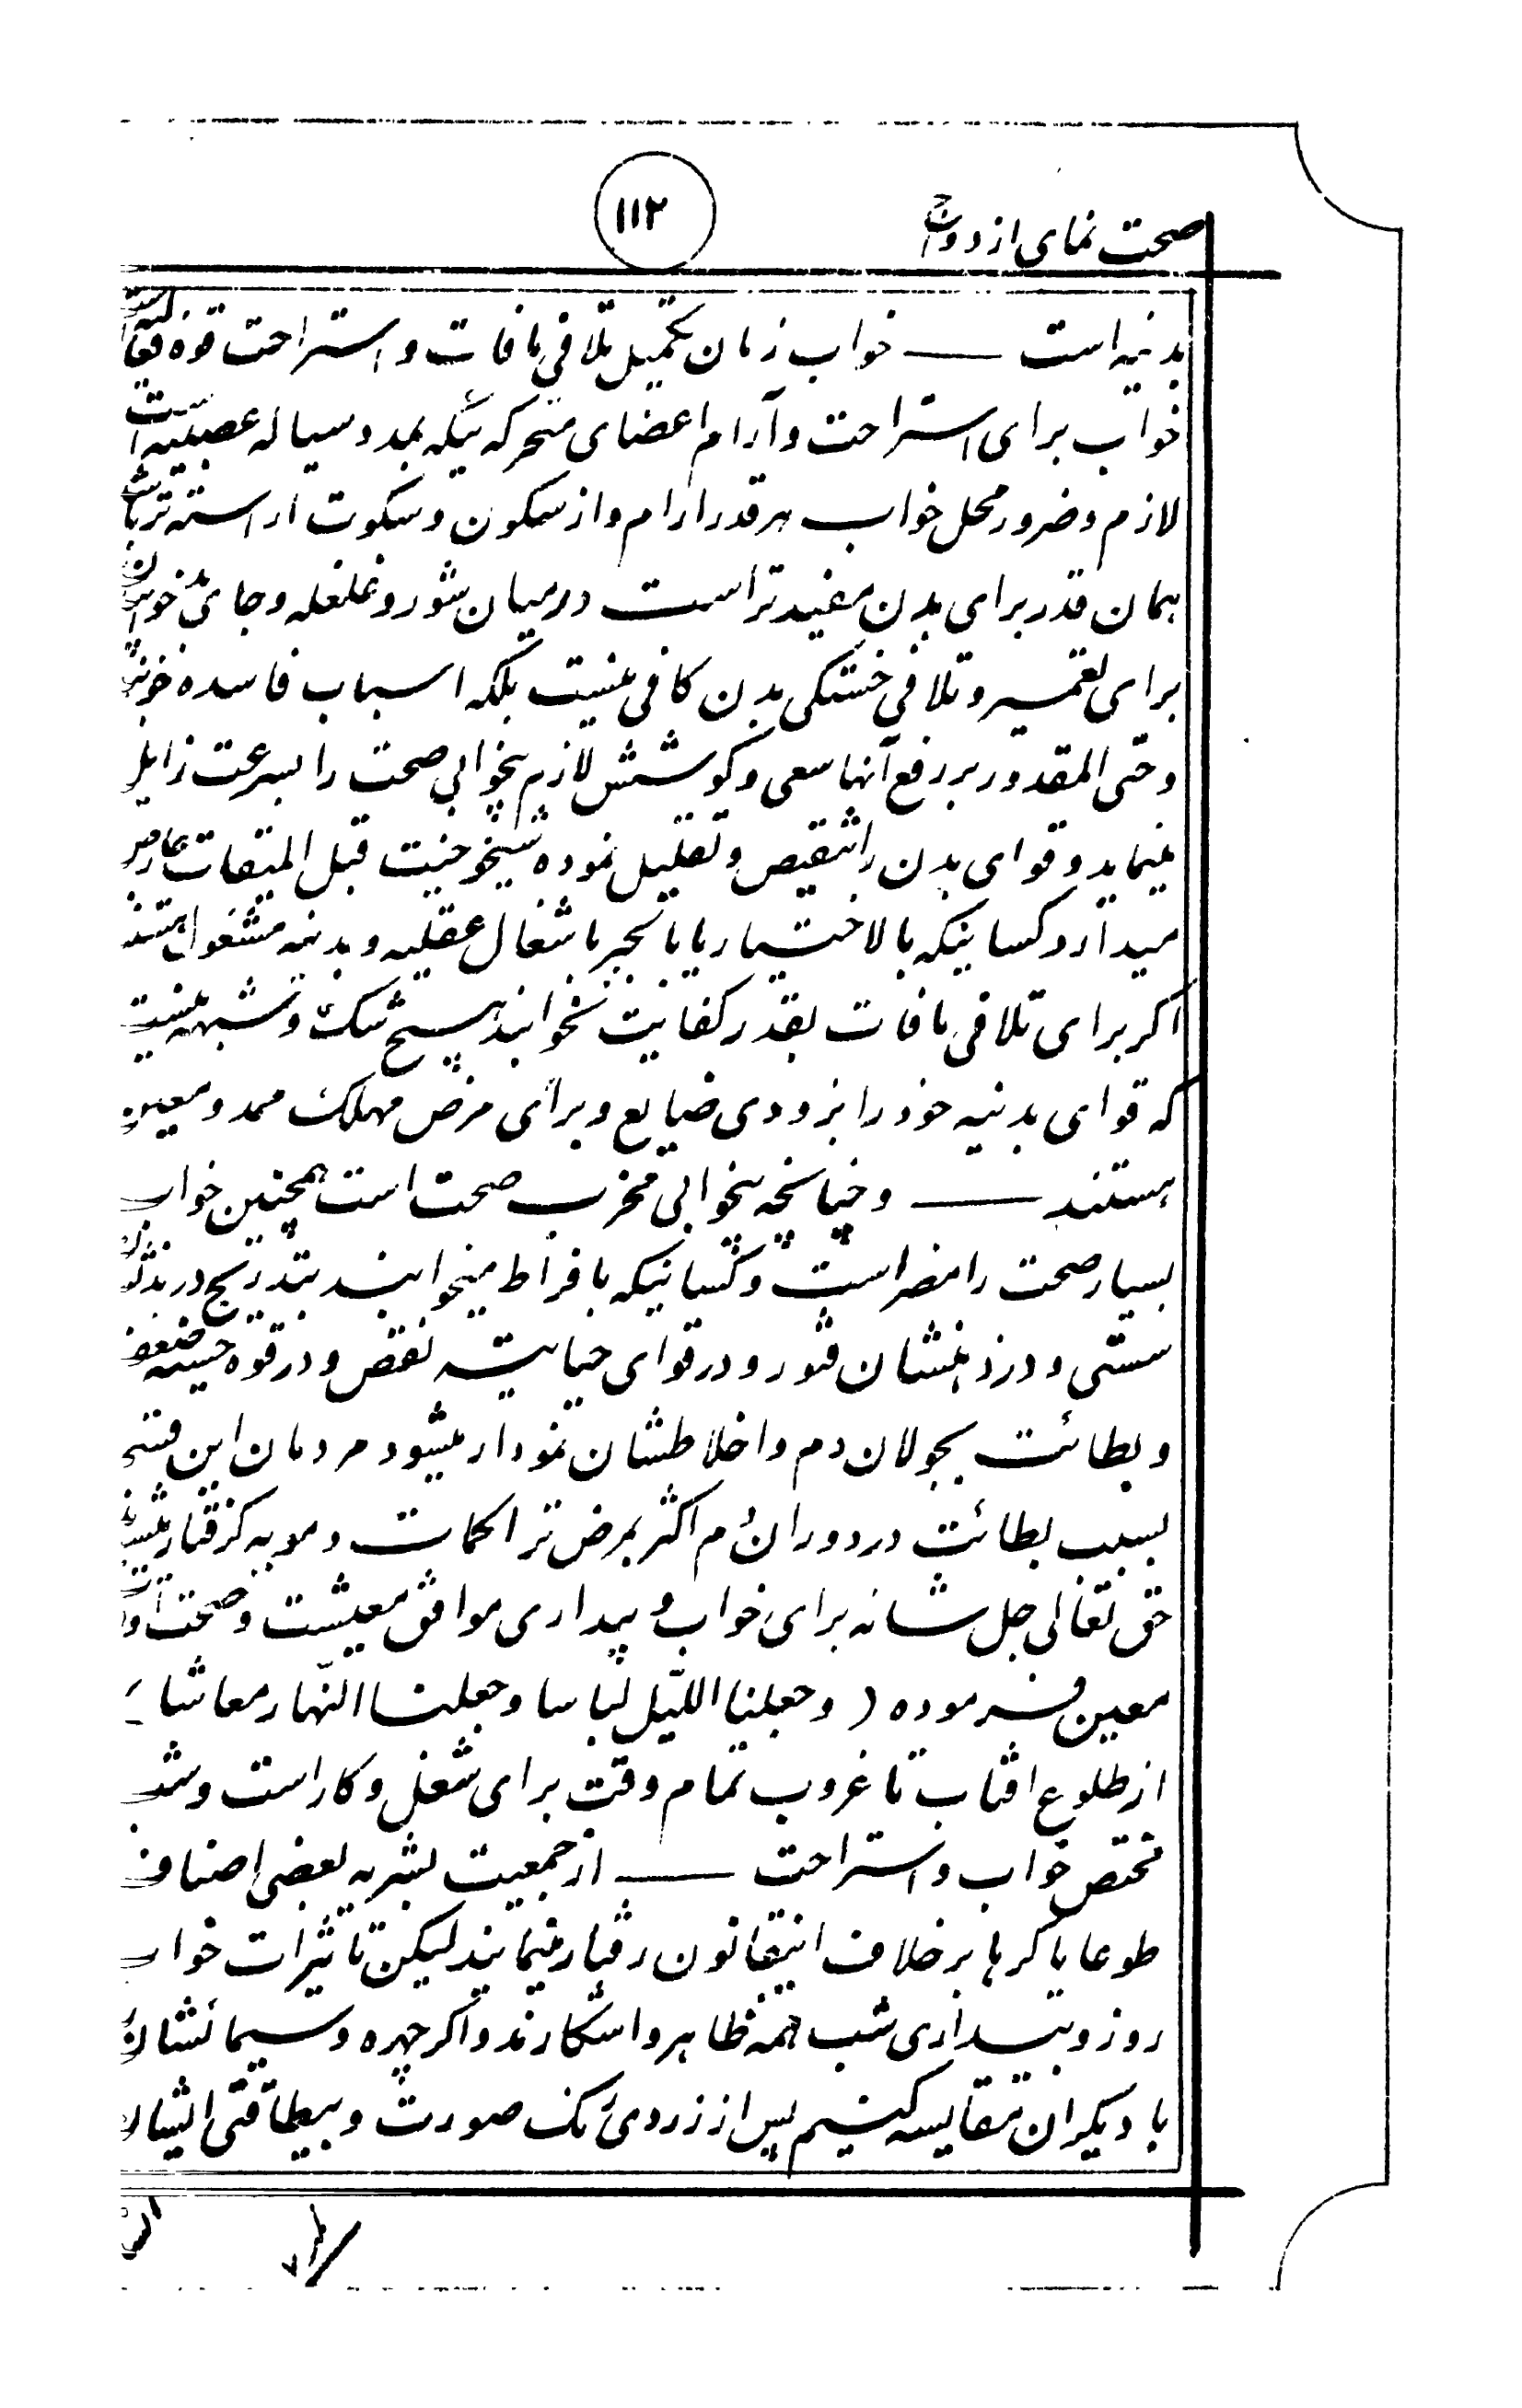 صحت نمای ازدواج
۱۱۲
بدنیه است — خواب زمان تکمیل تلافی مافات و استراحت قوه
خواب برای استراحت و آرام اعضای متحرکه ئیکه بمدد سیاله عصبیه است
لازم و ضرور محل خواب هرقدر ارام و از سکون و سکوت اراسته تر باشد
همان قدر برای بدن مفیدتر است درمیان شور و غلغله و جای
برای تعمیر و تلافی خستگی بدن کافی نیست بلکه اسباب فاسده
و حتی المقدور بر رفع آنها سعی و کوشش لازم بیخوابی صحت را بسرعت زایل
مینماید و قوای بدن را تنقیص و تقلیل نموده شیخوخیت قبل المیقات عارض
میدارد کسانیکه بالاختیار یا بالجبر باشغال عقلیه و بدنیه مشغول هستند
اکر برای تلافی مافات بقدر کفایت نخوابند هیچ شک و شبهه نیست
که قوای بدنیه خود را بزودی ضایع و برای مرض مهلک ممد و معین
هستند — و چنانچه بیخوابی مخرب صحت است همچنین خواب
بسیار صحت را مضر است و کسانیکه بافراط میخوابند بتدریج در بدنشان
سستی و در ذهنشان فتور و در قوای حیاتیه نقص و در قوه حسیه ضعف
و بطائت بجولان دم و اخلاطشان نمودار میشود مردمان این
بسبب بطائت در دوران دم اکثر بمرض تراکمات دمویه کرفتار میشوند
حق تعالی جل شانه برای خواب و بیداری موافق معیشت و صحت اوقات
معین فرموده ( وجعلنا اللّیل لباسا وجعلنا النّهار معاشا )
از طلوع افتاب تا غروب تمام وقت برای شغل و کار است و شب
مختص خواب و استراحت — از جمعیت بشریه بعضی اصناف
طوعا یا کرها بر خلاف اینقانون رفتار مینمایند لیکن تاثیرات خواب
روز و بیداری شب همه ظاهر و اشکارند و اکر چهره و سیمائشان
با دیکران مقایسه کنیم پس از زردی رنک صورت و بیطاقتی ایشان